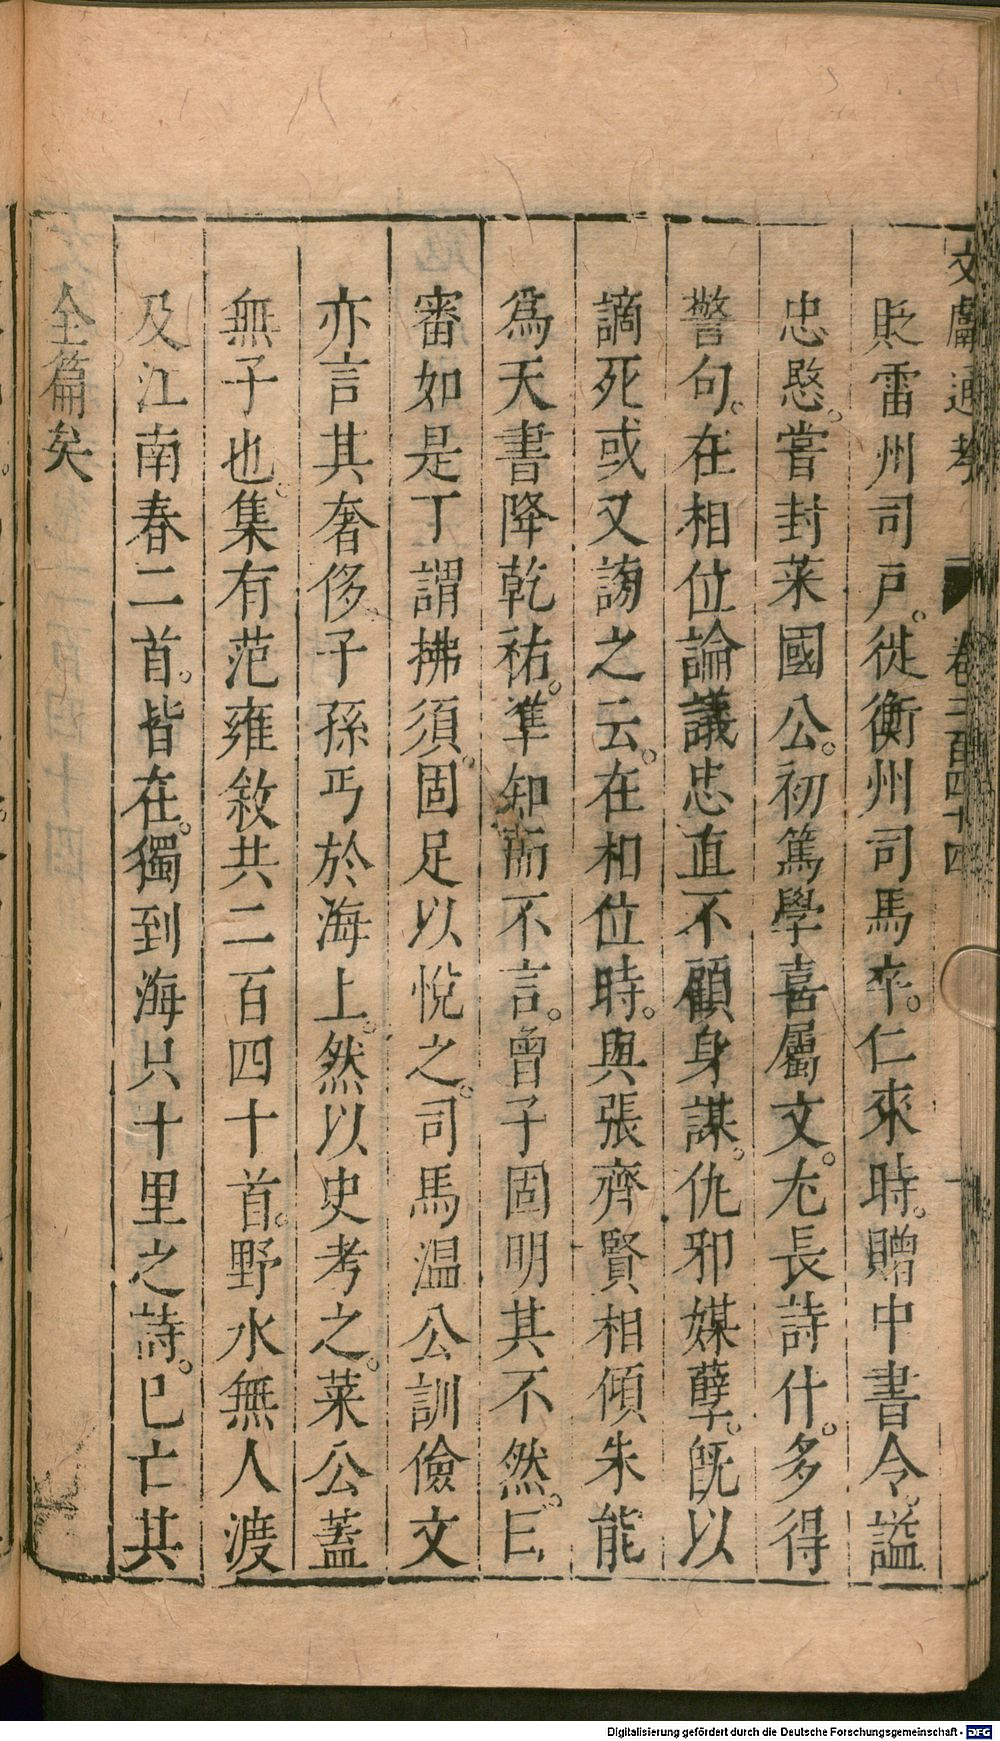 文獻通考　卷二百四十四
貶雷州司戸。徙衡州司馬卒。仁宗時。贈中書令。謚
忠愍。嘗封萊國公。初篤學喜屬文。尤長詩什。多得
警句。在相位論議忠直不顧身謀。仇邪媒孽。旣以
謫死或又謗之云。在相位時。與張齊賢相傾朱能
爲天書降乾祐。準知而不言。曾子固明其不然。曰
審如是丁謂拂須。固足以悅之。司馬温公訓儉文
亦言其奢侈。子孫丐於海上。然以史考之。萊公蓋
無子也。集有范雍敘共二百四十首。野水無人渡
及江南春二首。皆在。獨到海只十里之詩。已亡其
全篇矣
Digitalisierung gefördert durch die Deutsche Forschungsgemeinschaft - DFG